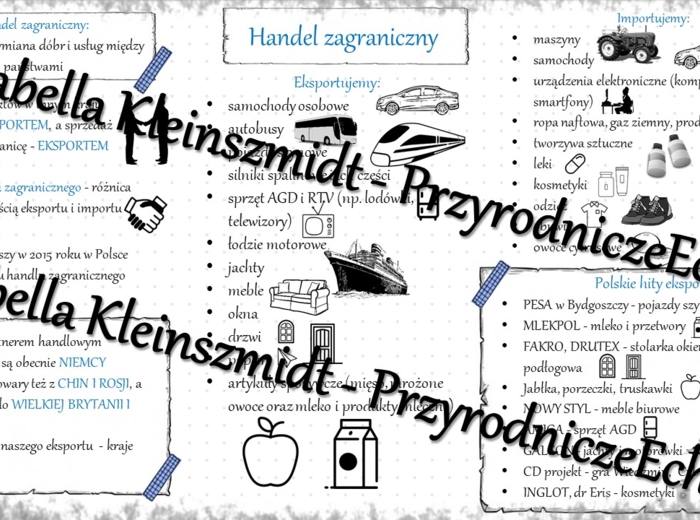 del zagraniczny:
miana dóbr i usług między
państwami
PORTEM, a sprzedaż
anicę - EKSPORTEM
zagranicznego - różnica
ścią eksportu i importu
szy w 2015 roku w Polsce
handlu zagranicznego
tnerem handlowym
są obecnie NIEMCY
owary też z CHIN I ROSJI, a
do WIELKIEJ BRYTANII I
naszego eksportu - kraje
Handel zagraniczny
Eksportujemy:
• samochody osobowe
• autobusy
• silniki spalinowe i ich części
• sprzęt AGD i RTV (np. lodówki,
telewizory)
• łodzie motorowe
• jachty
• meble
• okna
• drzwi
• artykuły spożywcze (mięso, mrożone
owoce oraz mleko i produkty mleczne)
Importujemy:
• maszyny
• samochody
• urządzenia elektroniczne (komp
smartfony)
• ropa naftowa, gaz ziemny, prod
• tworzywa sztuczne
• leki
• kosmetyki
• odzież
•
• owoce cytrusowe
Polskie hity ekspo
• PESA w Bydgoszczy - pojazdy szy
• MLEKPOL - mleko i przetwory
• FAKRO, DRUTEX - stolarka okien
podłogowa
• Jabłka, porzeczki, truskawki
• NOWY STYL - meble biurowe
• AMICA - sprzęt AGD
• GALEON - jachty
• CD projekt - gra Wiedźmin
• INGLOT, dr Eris - kosmetyki
abella Kleinszmidt - PrzyrodniczeEc
bella Kleinszmidt - PrzyrodniczeEch